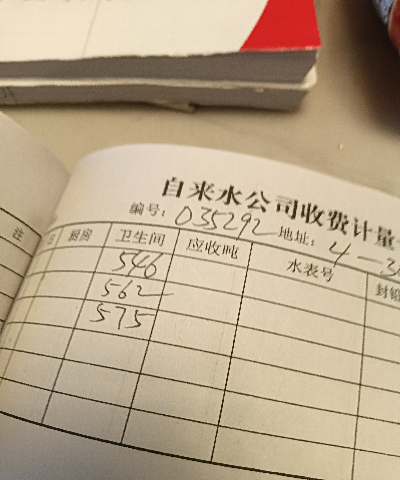 自来水公司收费计量
编号: 035292 地址: 4-30
注 厨房 卫生间 应收吨 水表号 封铅
546
562
575